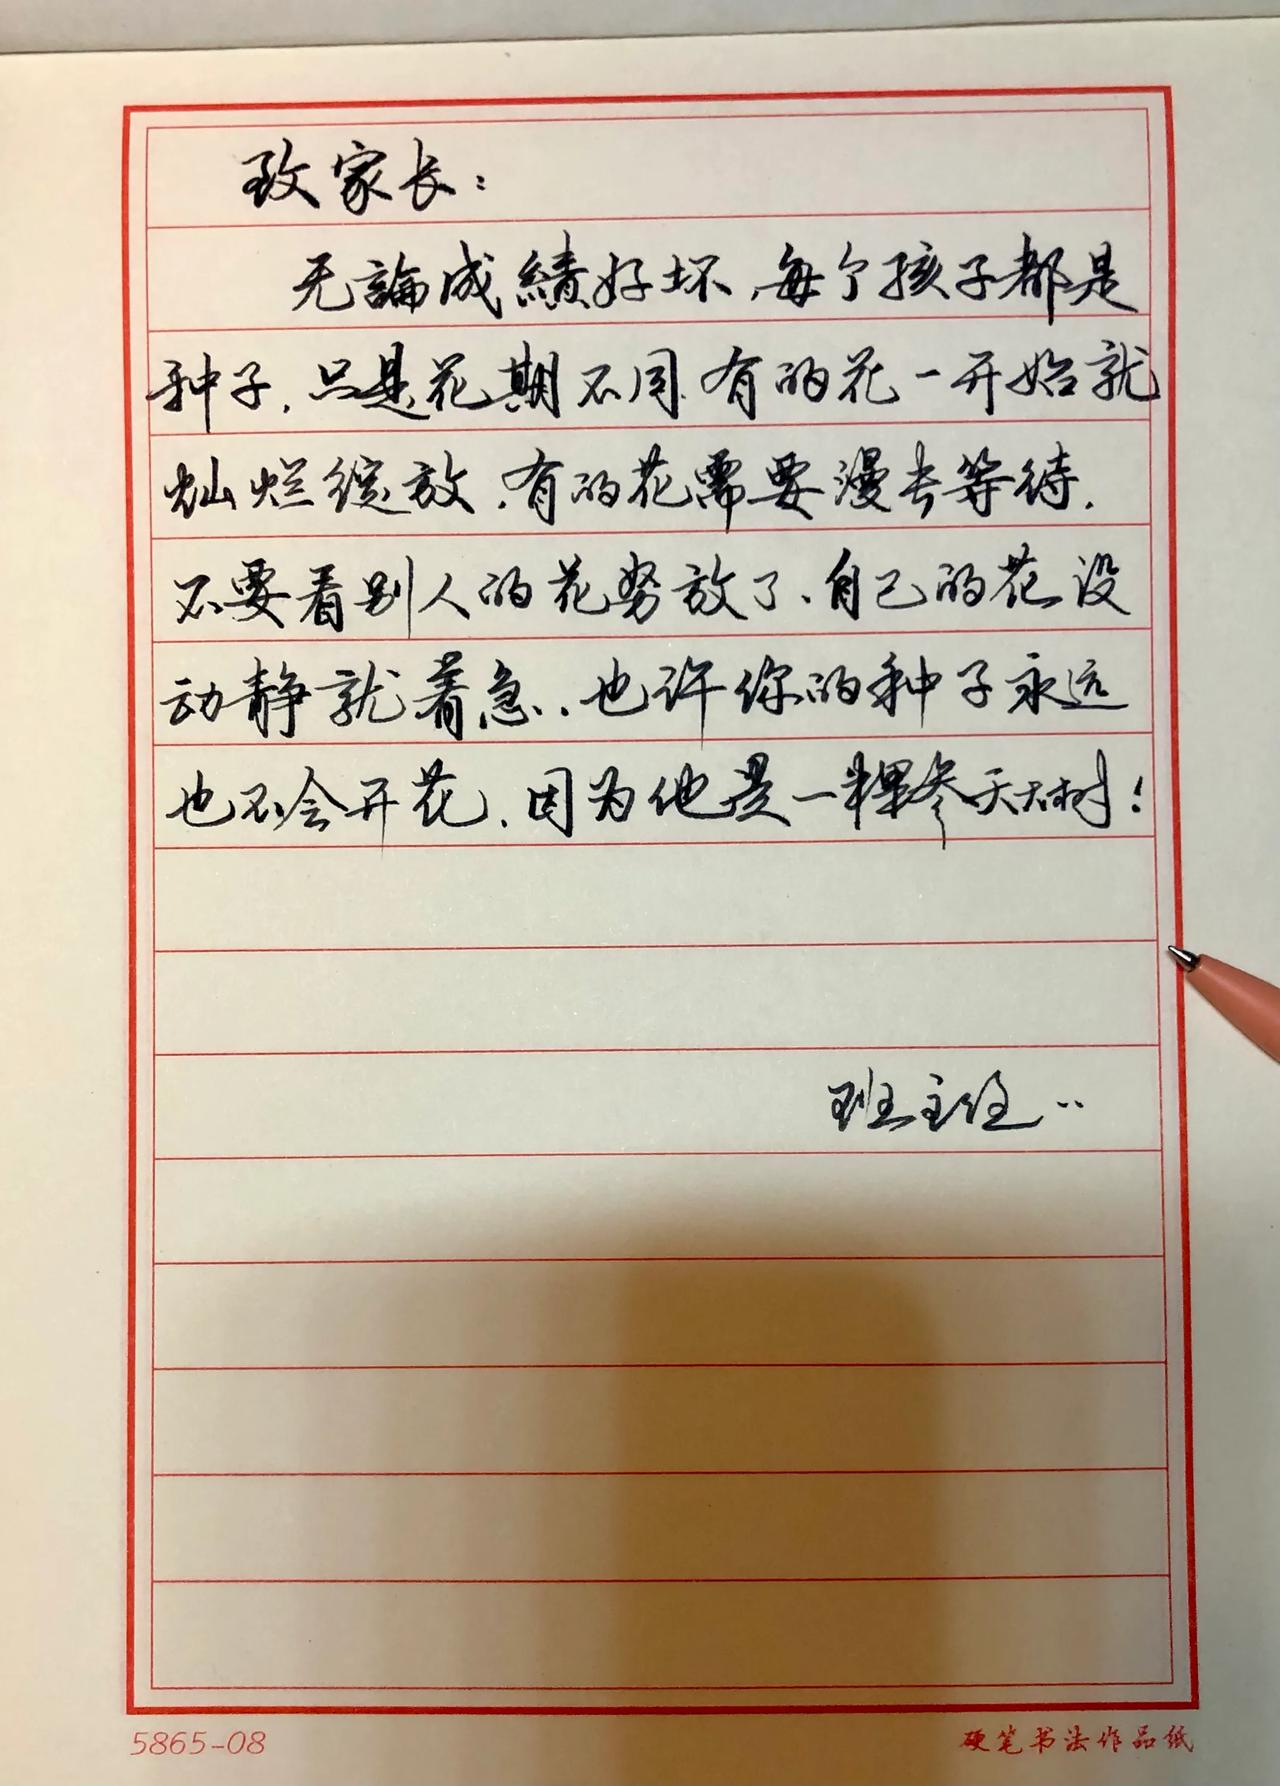 致家长:
无論成績好坏,每个孩子都是
种子,只是花期不同.有的花一开始就
灿烂绽放,有的花需要漫长等待.
不要看别人的花努放了、自己的花没
动静就着急.也许你的种子永远
也不会开花,因为他是一粿参天大树!
班主任..
5865-08
硬笔书法作品纸